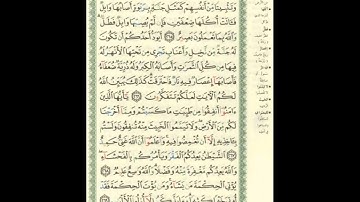 وَتَثْبِيتًا مِّنْ أَنفُسِهِمْ كَمَثَلِ جَنَّةٍۭ بِرَبْوَةٍ أَصَابَهَا وَابِلٌ
فَـَٔاتَتْ أُكُلَهَا ضِعْفَيْنِ فَإِن لَّمْ يُصِبْهَا وَابِلٌ فَطَلٌّ
وَٱللَّهُ بِمَا تَعْمَلُونَ بَصِيرٌ ٢٦٥ أَيَوَدُّ أَحَدُكُمْ أَن تَكُونَ
لَهُۥ جَنَّةٌ مِّن نَّخِيلٍ وَأَعْنَابٍ تَجْرِى مِن تَحْتِهَا ٱلْأَنْهَٰرُ لَهُۥ
فِيهَا مِن كُلِّ ٱلثَّمَرَٰتِ وَأَصَابَهُ ٱلْكِبَرُ وَلَهُۥ ذُرِّيَّةٌ ضُعَفَآءُ
فَأَصَابَهَآ إِعْصَارٌ فِيهِ نَارٌ فَٱحْتَرَقَتْ كَذَٰلِكَ يُبَيِّنُ ٱللَّهُ
لَكُمُ ٱلْـَٔايَٰتِ لَعَلَّكُمْ تَتَفَكَّرُونَ ٢٦٦ يَٰٓأَيُّهَا ٱلَّذِينَ
ءَامَنُوٓا۟ أَنفِقُوا۟ مِن طَيِّبَٰتِ مَا كَسَبْتُمْ وَمِمَّآ أَخْرَجْنَا
لَكُم مِّنَ ٱلْأَرْضِ وَلَا تَيَمَّمُوا۟ ٱلْخَبِيثَ مِنْهُ تُنفِقُونَ وَلَسْتُم
بِـَٔاخِذِيهِ إِلَّآ أَن تُغْمِضُوا۟ فِيهِ وَٱعْلَمُوٓا۟ أَنَّ ٱللَّهَ غَنِىٌّ حَمِيدٌ
٢٦٧ ٱلشَّيْطَٰنُ يَعِدُكُمُ ٱلْفَقْرَ وَيَأْمُرُكُم بِٱلْفَحْشَآءِ
وَٱللَّهُ يَعِدُكُم مَّغْفِرَةً مِّنْهُ وَفَضْلًا وَٱللَّهُ وَٰسِعٌ عَلِيمٌ ٢٦٨
يُؤْتِى ٱلْحِكْمَةَ مَن يَشَآءُ وَمَن يُؤْتَ ٱلْحِكْمَةَ فَقَدْ